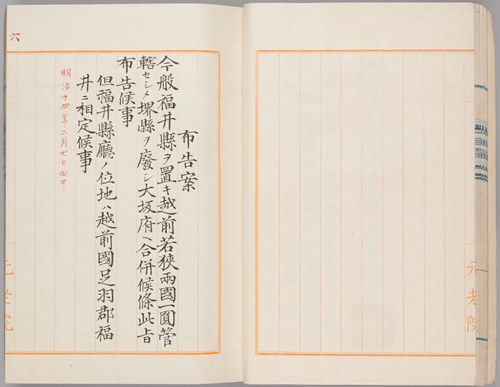 元老院
布告案
今般福井縣ヲ置キ越前若狹兩國一圓管
轄セシメ堺縣ヲ廢シ大坂府ヘ合併候條此旨
布告候事
但福井縣廳ノ位地ハ越前國足羽郡福
井ニ相定候事
明治十四年二月七日
六
元老院